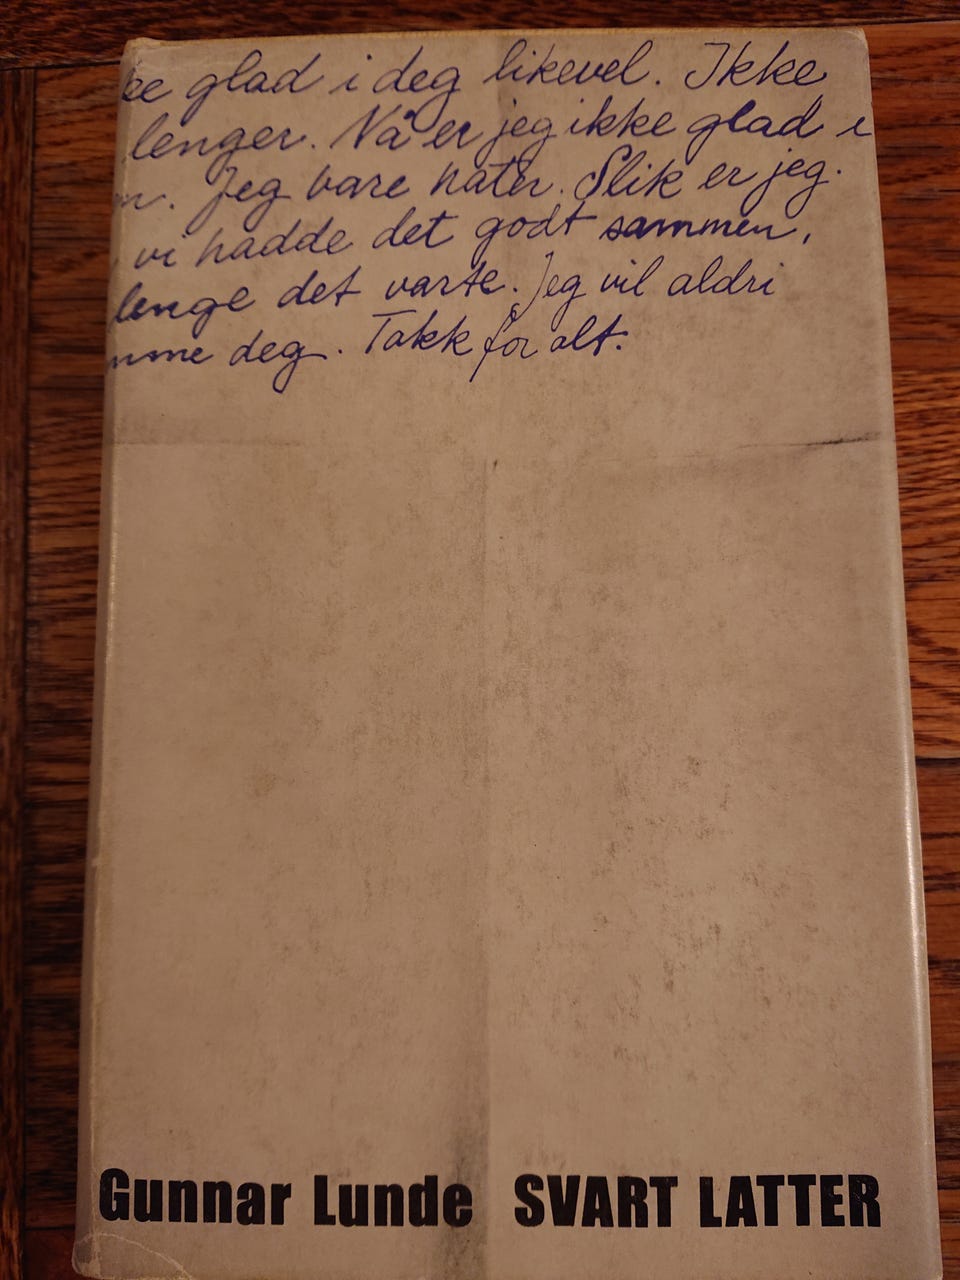 ke glad i deg likevel. Ikke
lenger. Nå er jeg ikke glad i
n. Jeg bare hater. Slik er jeg.
vi hadde det godt sammen,
lenge det varte. Jeg vil aldri
mme deg. Takk for alt.
Gunnar Lunde SVART LATTER